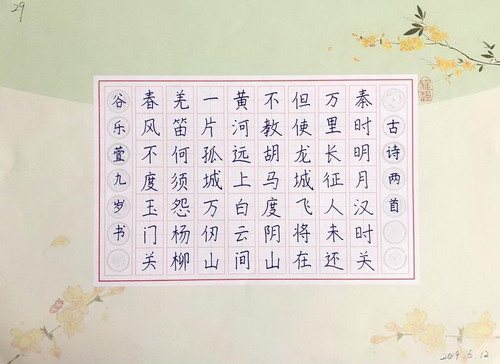 29
古诗两首
秦时明月汉时关
万里长征人未还
但使龙城飞将在
不教胡马度阴山
黄河远上白云间
一片孤城万仞山
羌笛何须怨杨柳
春风不度玉门关
谷乐萱九岁书
2019.5.12